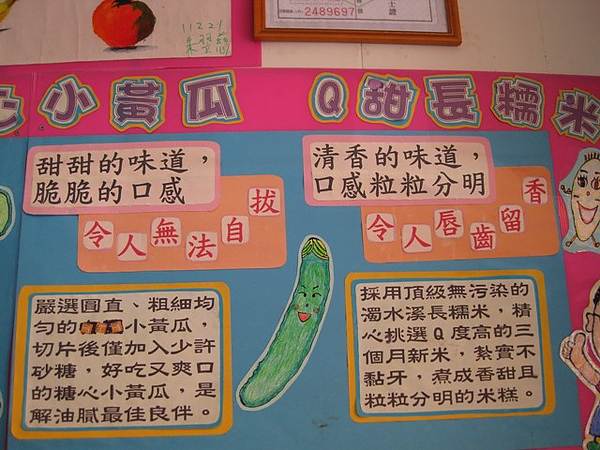 士證
2489697
11221
心小黃瓜
甜甜的味道，
脆脆的口感
令人無法自拔
嚴選圓直、粗細均
勻的小黃瓜，
切片後僅加入少許
砂糖，好吃又爽口
的糖心小黃瓜，是
解油膩最佳良伴。
Q甜長糯米
清香的味道，
口感粒粒分明
令人唇齒留香
採用頂級無污染的
濁水溪長糯米，精
心挑選Q度高的三
個月新米，紮實不
黏牙，煮成香甜且
粒粒分明的米糕。